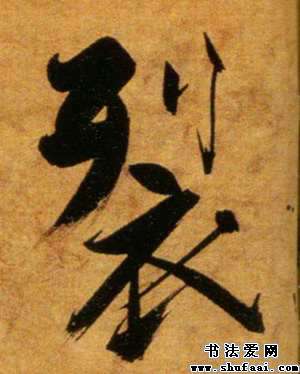 裂
书法爱网
www.shufaai.com